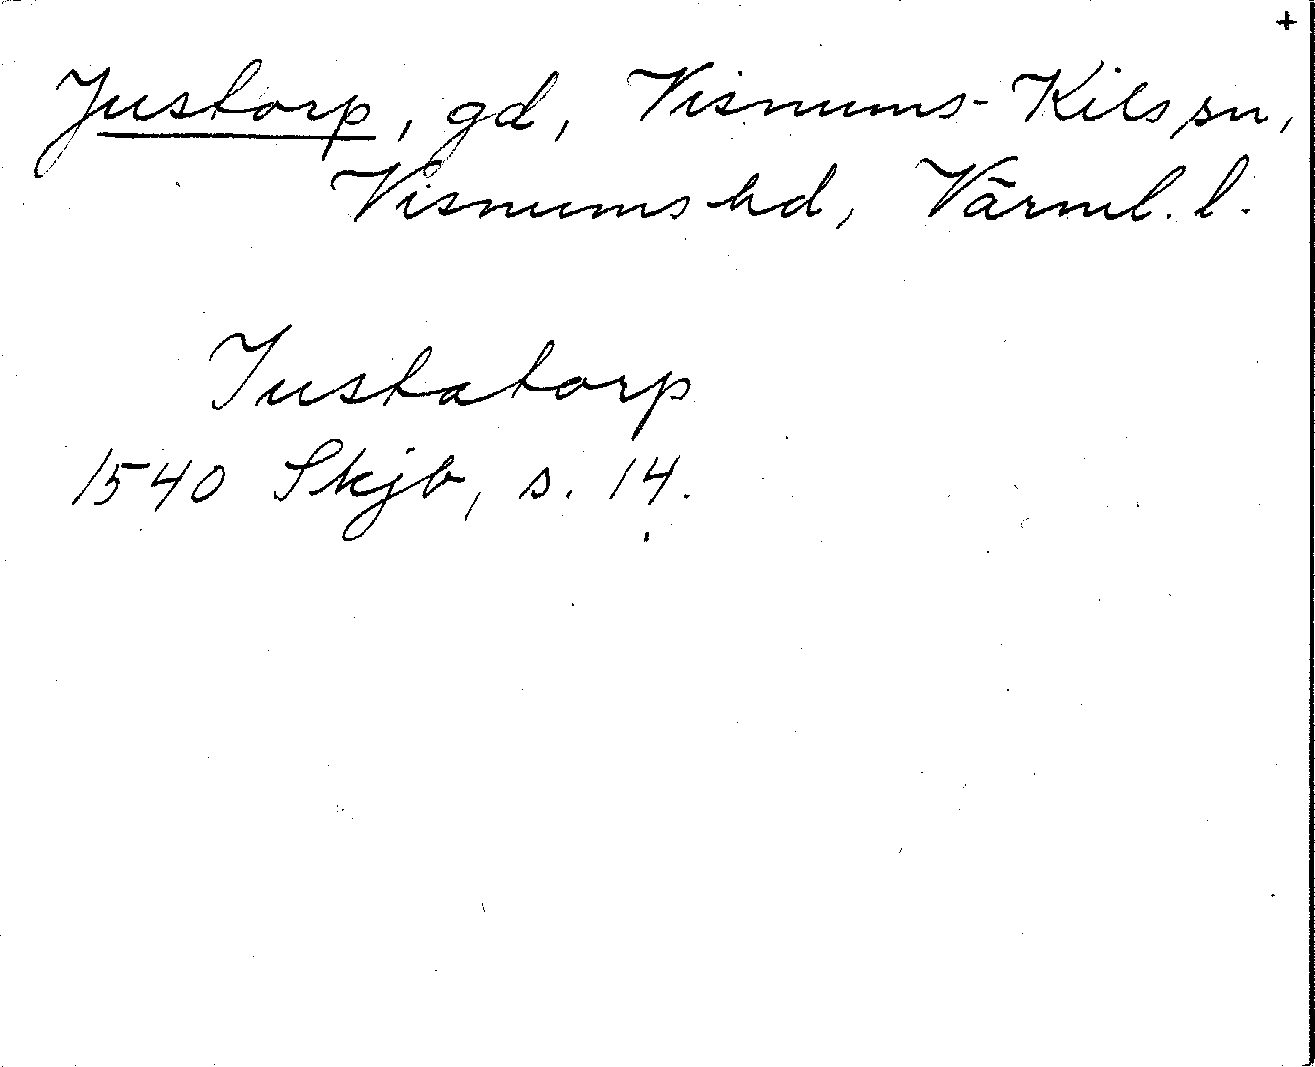 +
Justorp, gd, Visnums-Kils sn,
Visnums hd, Värml. l.
Iustatorp
1540 Skjb, s. 14.